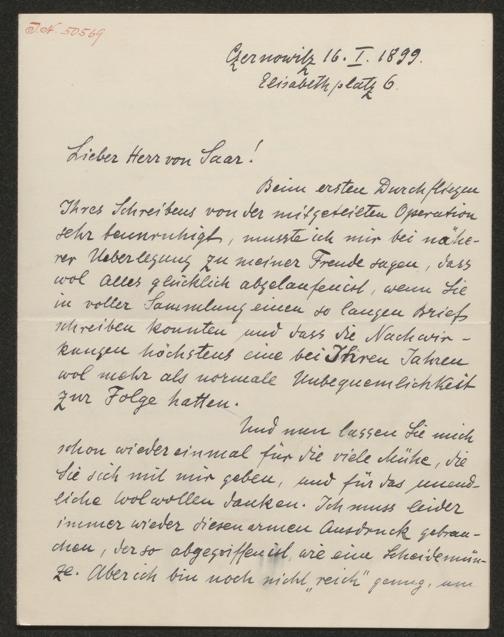 J.N. 50569
Czernowitz 16. I. 1899.
Elisabethplatz 6.
Lieber Herr von Saar!
Beim ersten Durchfliegen
Ihres Schreibens von der mitgeteilten Operation
sehr beunruhigt, musste ich mir bei nähe-
rer Ueberlegung zu meiner Freude sagen, dass
wol Alles glücklich abgelaufen ist, wenn Sie
in voller Sammlung einen so langen Brief
schreiben konnten und dass die Nachwir-
kungen höchstens eine bei Ihren Jahren
wol mehr als normale Unbequemlichkeit
zur Folge hatten.
Und nun lassen Sie mich
schon wieder einmal für die viele Mühe, die
Sie sich mit mir geben, und für das unend-
liche Wolwollen danken. Ich muss leider
immer wieder diesen armen Ausdruck gebrau-
chen, der so abgegriffen ist, wie eine Scheidemün-
ze. Aber ich bin noch nicht „reich" genug, um